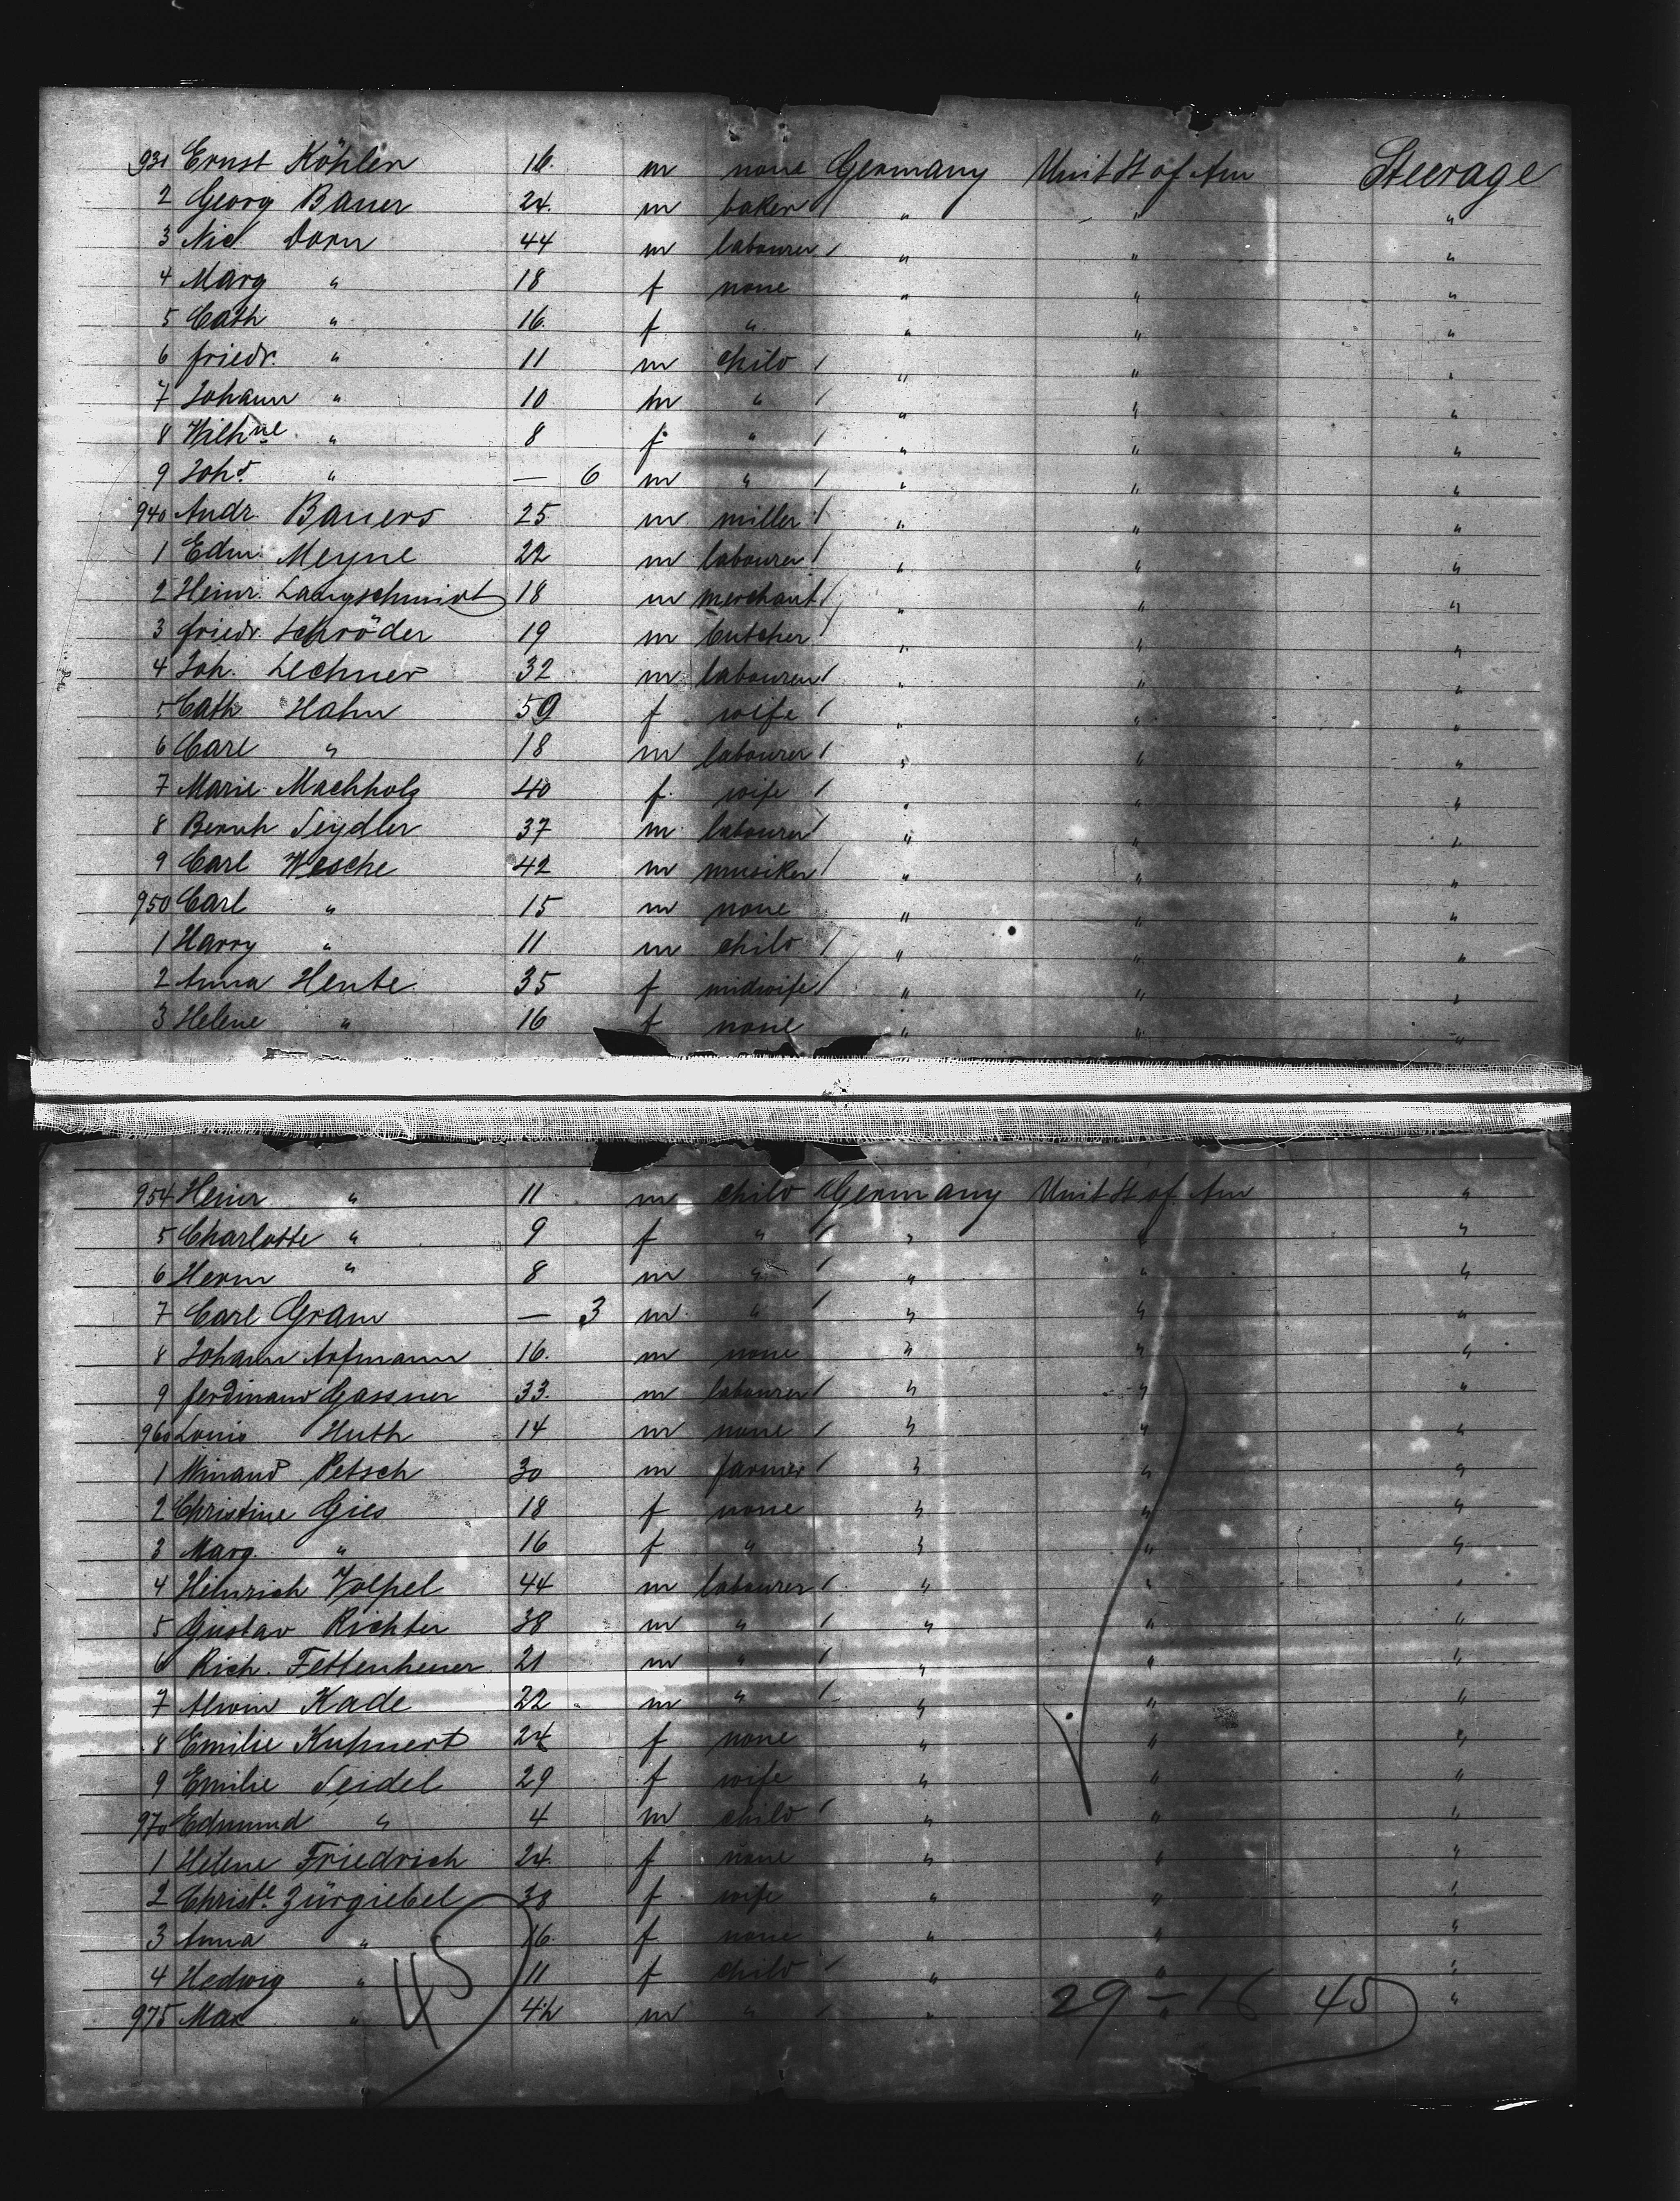 931 Ernst Köhler 16. m none Germany Unit St of Am Steerage
2 Georg Bauer 24. m baker / " " "
3 Nic Dorn 44 m labourer / " " "
4 Marg " 18 f none " " "
5 Cath " 16. f " " " "
6 Friedr. " 11 m child / " " "
7 Johann " 10 m " / " " "
8 Wilhne. " 8 f " / " " "
9 Johs " — 6 m " / " " "
940 Andr. Bauers 25 m miller / " " "
1 Edm. Meyne 22 m labourer / " " "
2 Heinr. Langschmidt 18 m merchant / " " "
3 Friedr. Schröder 19 m butcher / " " "
4 Joh. Lechner 32 m labourer / " " "
5 Cath Hahn 59 f wife / " " "
6 Carl " 18 m labourer / " " "
7 Marie Machholz 40 f. wife / " " "
8 Bernh Seydler 37 m labourer / " " "
9 Carl Wesche 42 m musiker / " " "
950 Carl " 15 m none " " "
1 Harry " 11 m child / " " "
2 Anna Hente 35 f midwife / " " "
3 Helene " 16 f none " " "
954 Heinr " 11 m child / Germany Unit St of Am "
5 Charlotte " 9 f " / " " "
6 Herm " 8 m " / " " "
7 Carl Gram — 3 m " / " " "
8 Johann Hofmann 16. m none " " "
9 Ferdinand Gassner 33. m labourer / " " "
960 Louis Huth 14 m none / " " "
1 Winand Petsch 30 m farmer / " " "
2 Christine Gies 18 f none " " "
3 Marg. " 16 f " " " "
4 Heinrich Volpel 44 m labourer / " " "
5 Gustav Richter 38 m " / " " "
6 Rich. Fettenheuer 21 m " / " " "
7 Alwin Kade 22 m " / " " "
8 Emilie Kuhnert 24 f none " " "
9 Emilie Seidel 29 f wife " " "
970 Edmund " 4 m child / " " "
1 Helene Friedrich 24. f none " " "
2 Christe. Zürgiebel 38 f wife " " "
3 Anna " 16. f none " " "
4 Hedwig " 11 f child / " " "
975 Max " 4½ m " / " " "
45 29 – 16 45